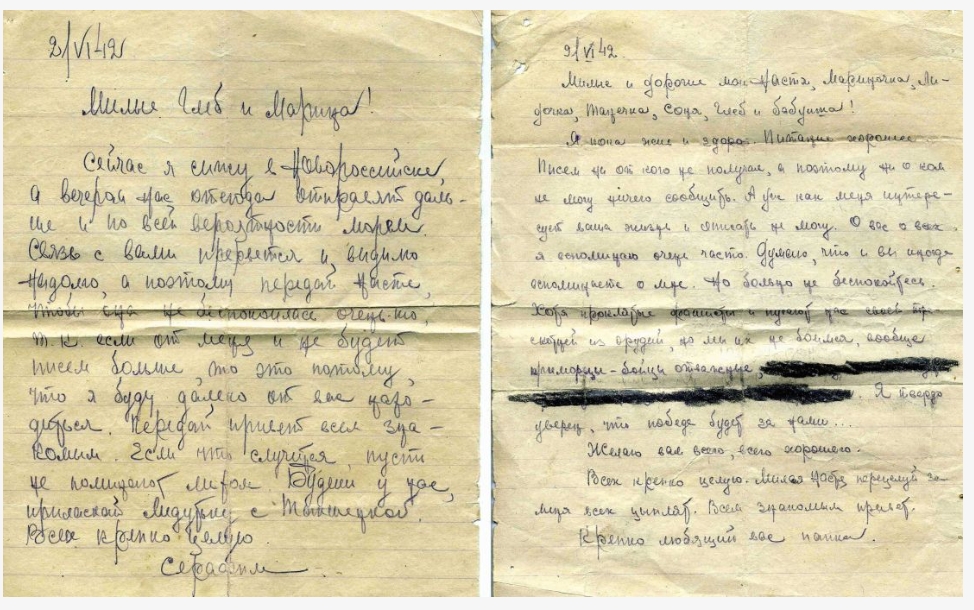 2/VI-42
Милые Глеб и Марица!
Сейчас я сижу в Новороссийске,
а вечером нас отсюда отправят даль-
ше и по всей вероятности морем.
Связь с вами прервется и, видимо
надолго, а поэтому передай Насте,
чтобы она не беспокоилась очень-то,
т.к. если от меня и не будет
писем больше, то это потому,
что я буду далеко от вас нахо-
диться. Передай привет всем зна-
комым. Если что случится, пусть
не поминают лихом. Будешь у нас,
приласкай Лидушку с Танечкой.
Всех крепко целую.
Серафим
9/VI 42.
Милые и дорогие мои Настя, Марицочка, Ли-
дочка, Танечка, Соня, Глеб и бабушка!
Я пока жив и здоров. Питание хорошее
Писем ни от кого не получаю, а поэтому ни о ком
не могу ничего сообщить. А уж как меня интере-
сует ваша жизнь и описать не могу. О вас о всех
я вспоминаю очень часто. Думаю, что и вы иногда
вспоминаете о мне. Но больно не беспокойтесь.
Хотя проклятые фашисты и пугают нас своей тре-
скотней из орудий, но мы их не боимся, вообще
приморцы - бойцы отважные,
Я твердо
уверен, что победа будет за нами...
Желаю вам всего, всего хорошего.
Всех крепко целую. Милая Настя перецелуй за
меня всех цыплят. Всем знакомым привет.
Крепко любящий вас папка.